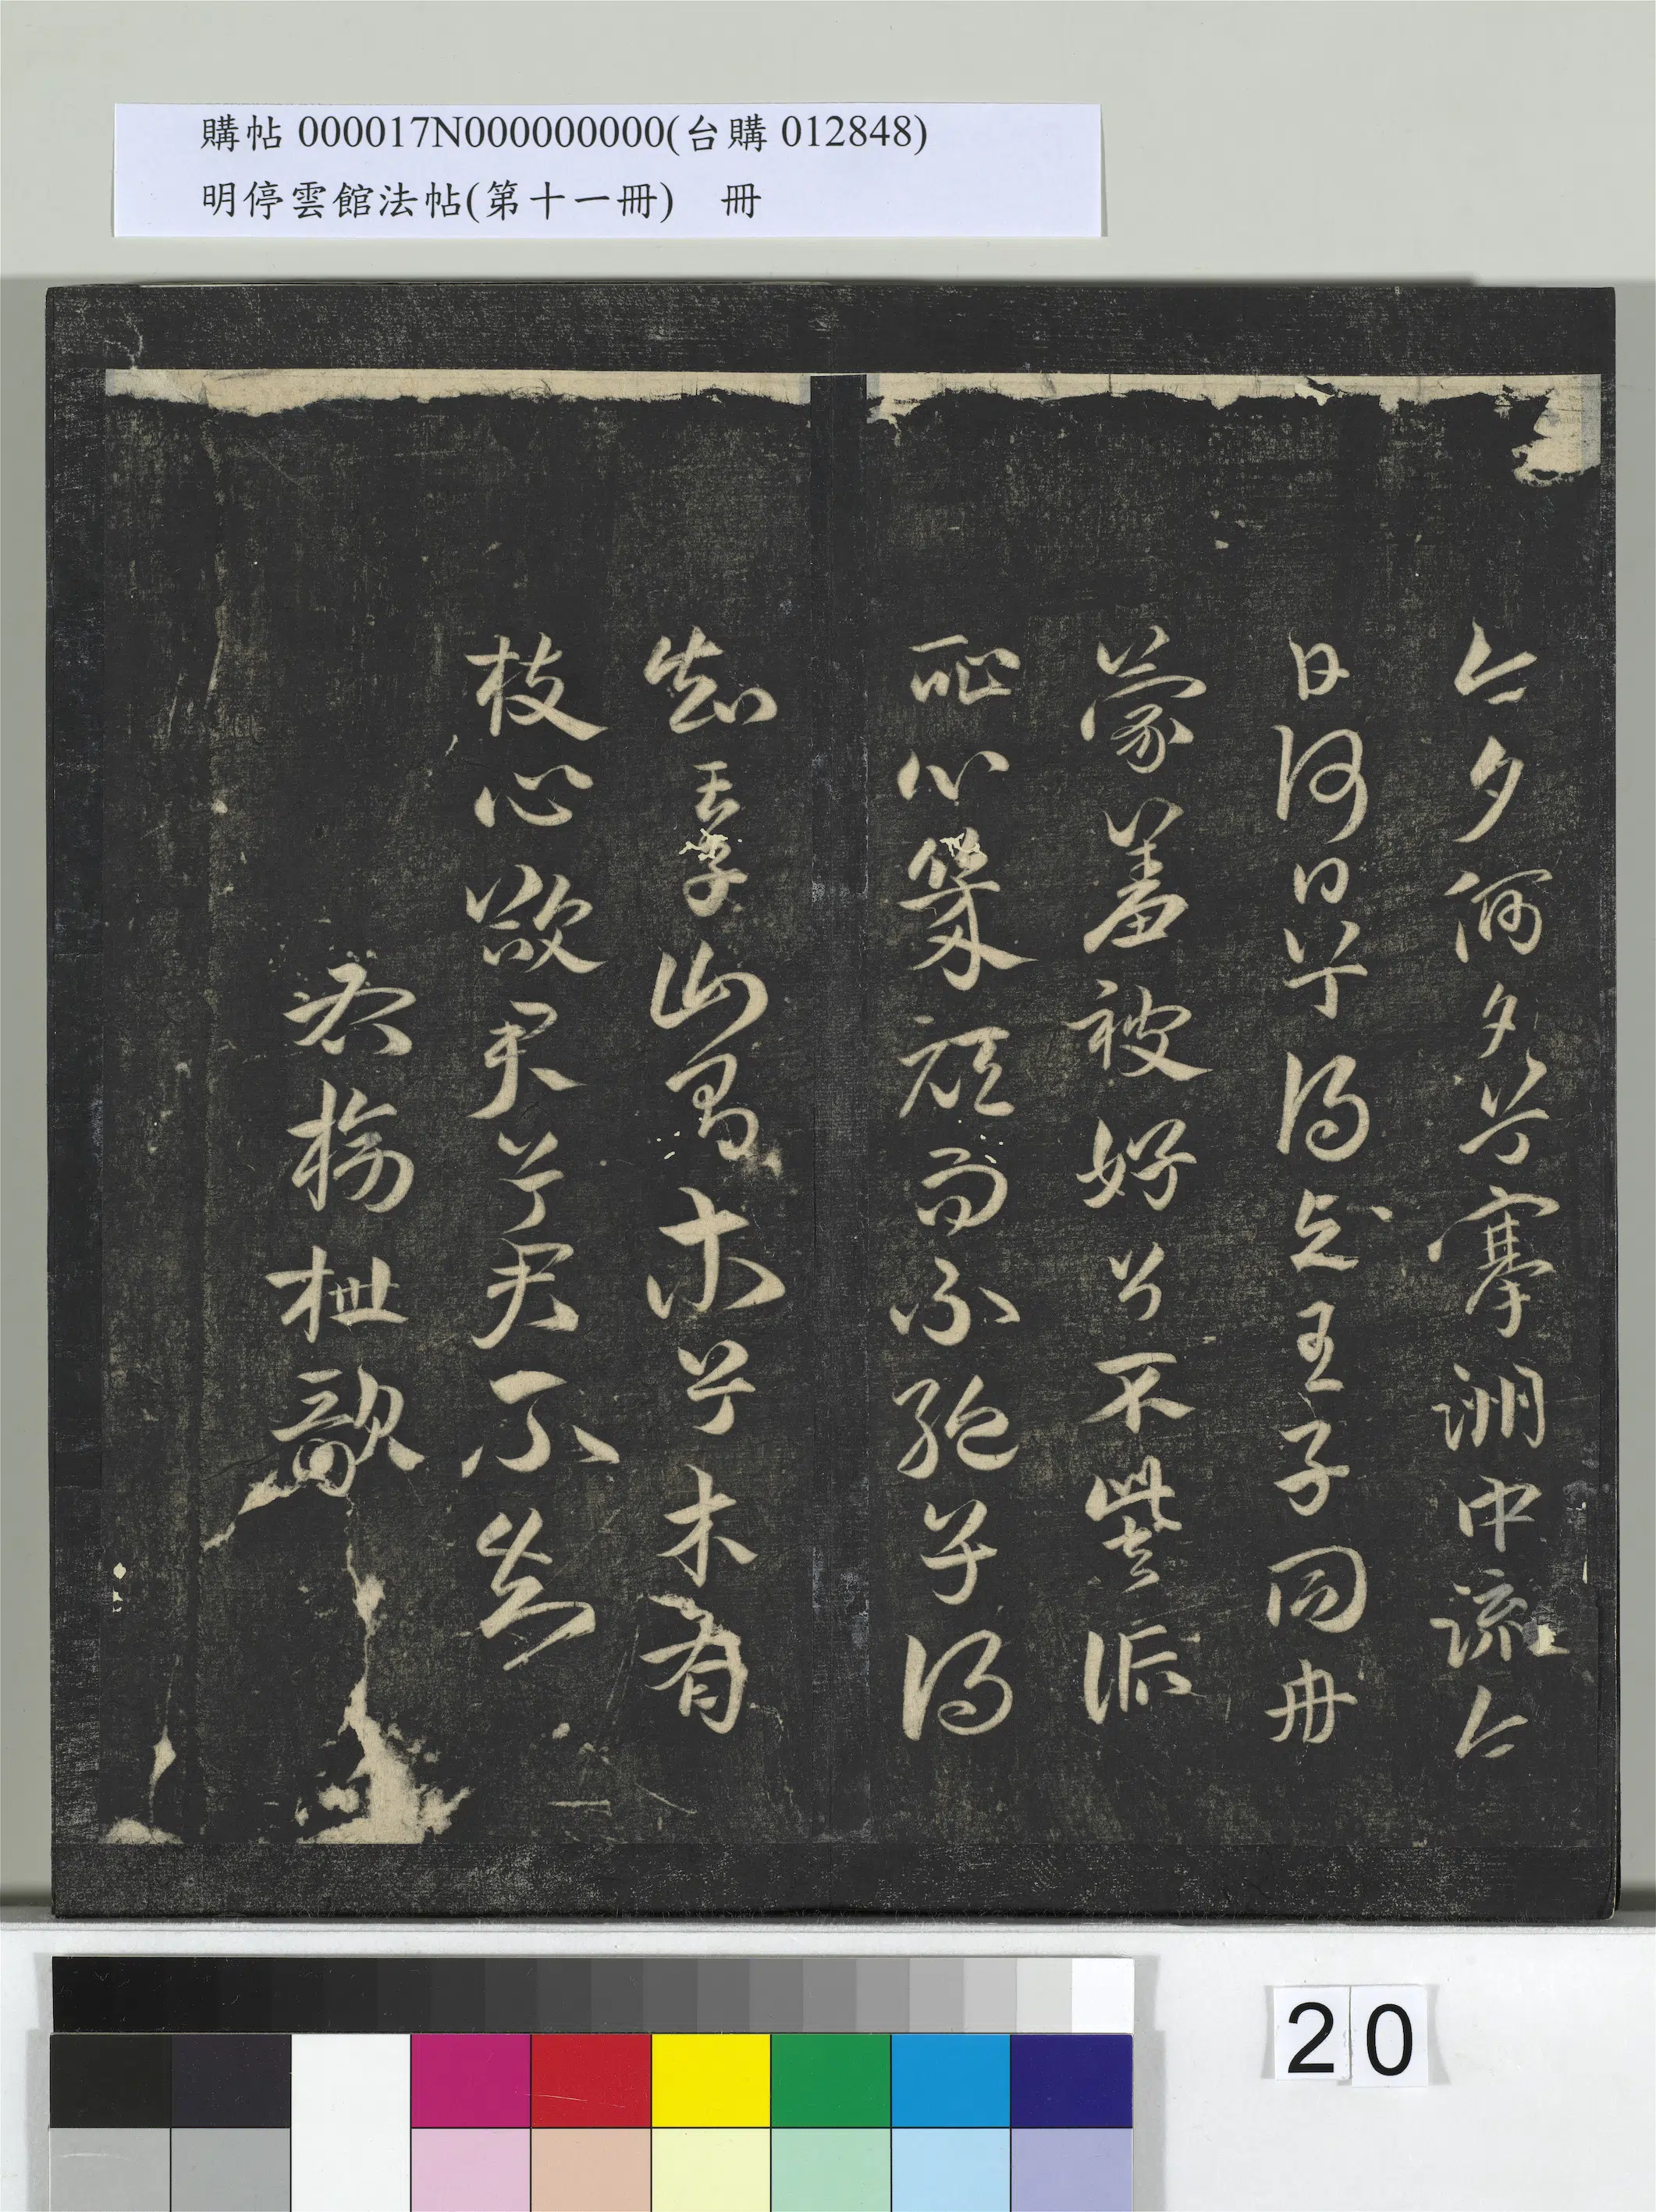 購帖 000017N000000000(台購 012848)
明停雲館法帖(第十一冊)　冊
今夕何夕兮搴洲中流今
日何日兮得與王子同舟
蒙羞被好兮不訾詬
恥心幾頑而不絕兮得
知王子山有木兮木有
枝心欲君兮君不知
右榜枻歌
20